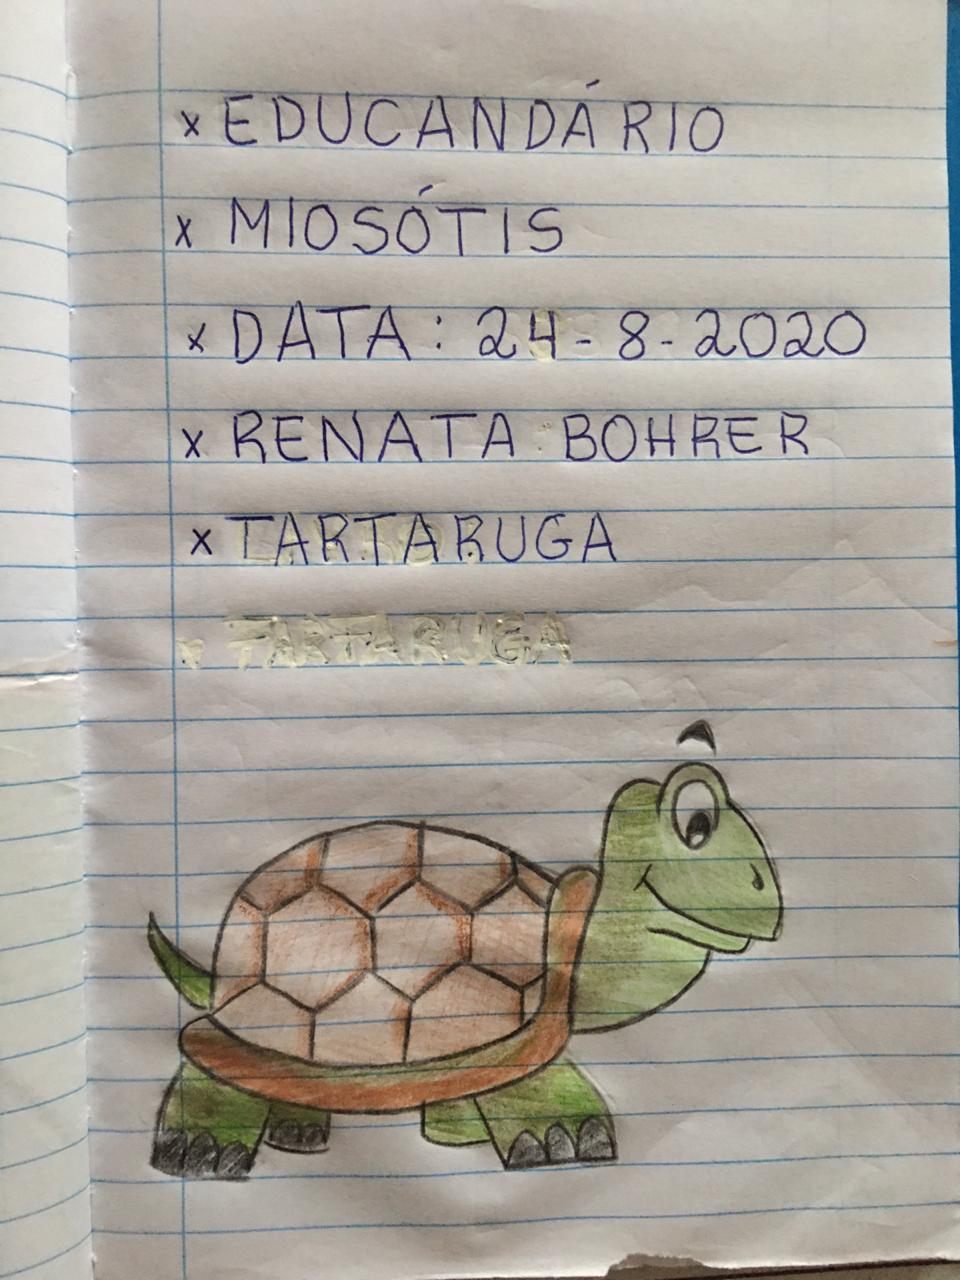 x EDUCANDÁRIO
x MIOSÓTIS
x DATA: 24-8-2020
x RENATA BOHRER
x TARTARUGA
TARTARUGA